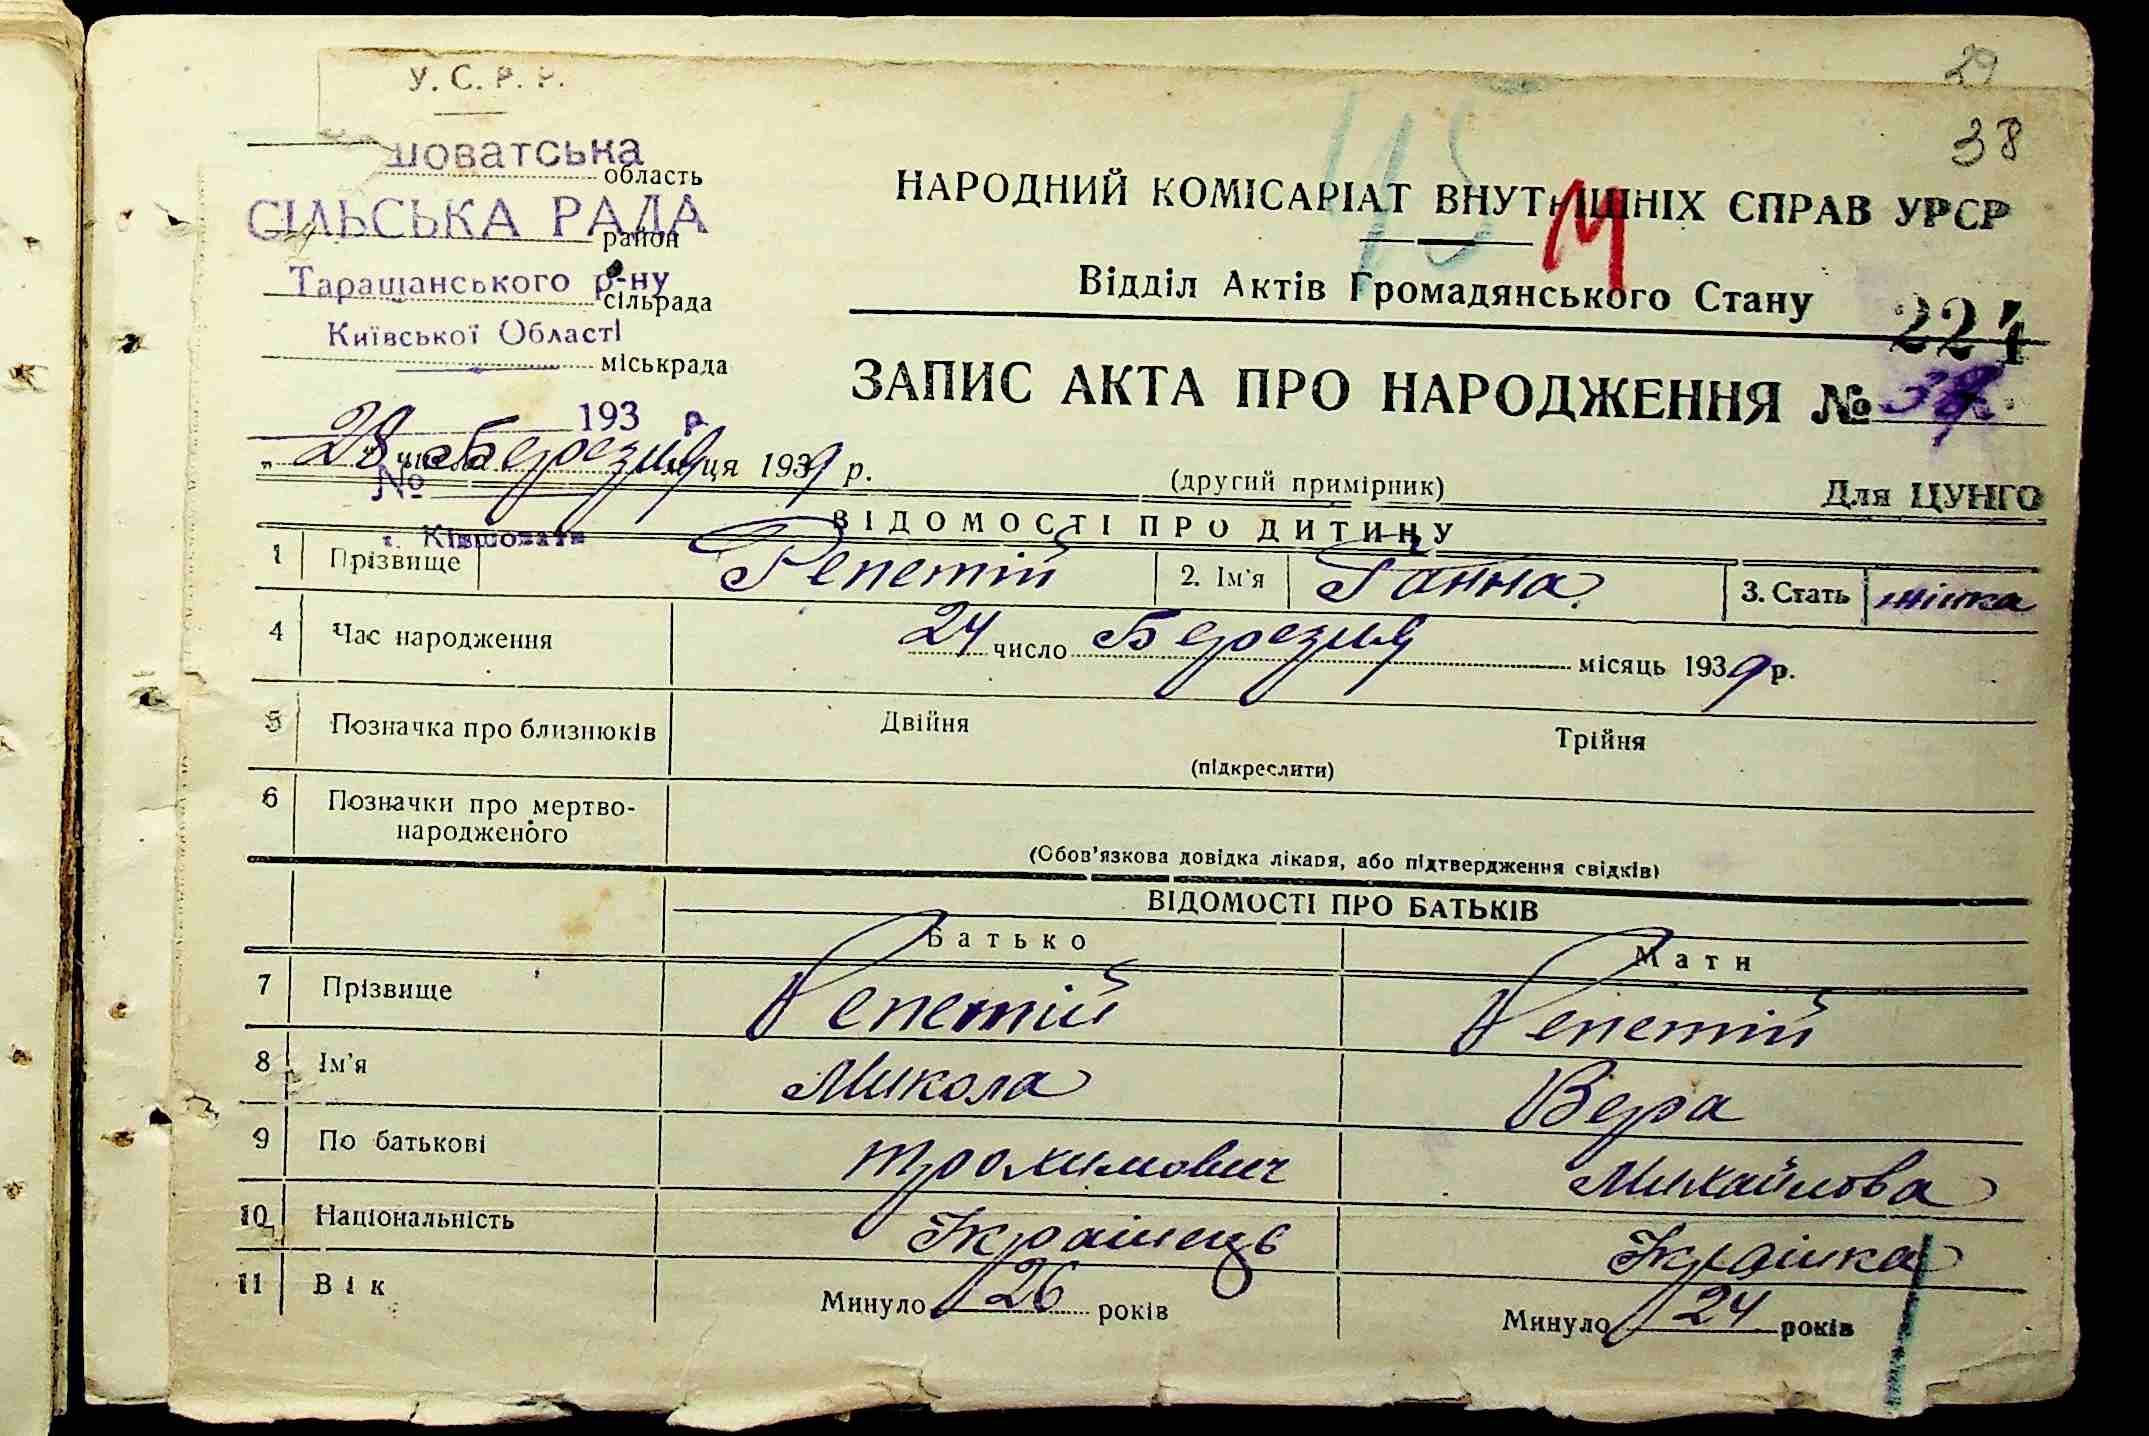 29
38
У. С. Р. Р.
шоватська
область
СІЛЬСЬКА РАДА
район
Таращанського р-ну
сільрада
Київської Області
міськрада
193 р.
№
с. Ківшовати
415
М
НАРОДНИЙ КОМІСАРІАТ ВНУТРІШНІХ СПРАВ УРСР
Відділ Актів Громадянського Стану
224
ЗАПИС АКТА ПРО НАРОДЖЕННЯ №
„28" числа Березня м-ця 1939 р.
(другий примірник)
Для ЦУНГО
ВІДОМОСТІ ПРО ДИТИНУ
1 Прізвище Репетій 2. Ім'я Ганна 3. Стать жінка
4 Час народження 24 число Березня місяць 1939 р.
5 Позначка про близнюків Двійня Трійня
(підкреслити)
6 Позначки про мертво-
народженого
(Обов'язкова довідка лікаря, або підтвердження свідків)
ВІДОМОСТІ ПРО БАТЬКІВ
Батько Мати
7 Прізвище Репетій Репетій
8 Ім'я Микола Вера
9 По батькові Трохимович Михайлова
10 Національність Українець Українка
11 Вік Минуло 26 років Минуло 24 років